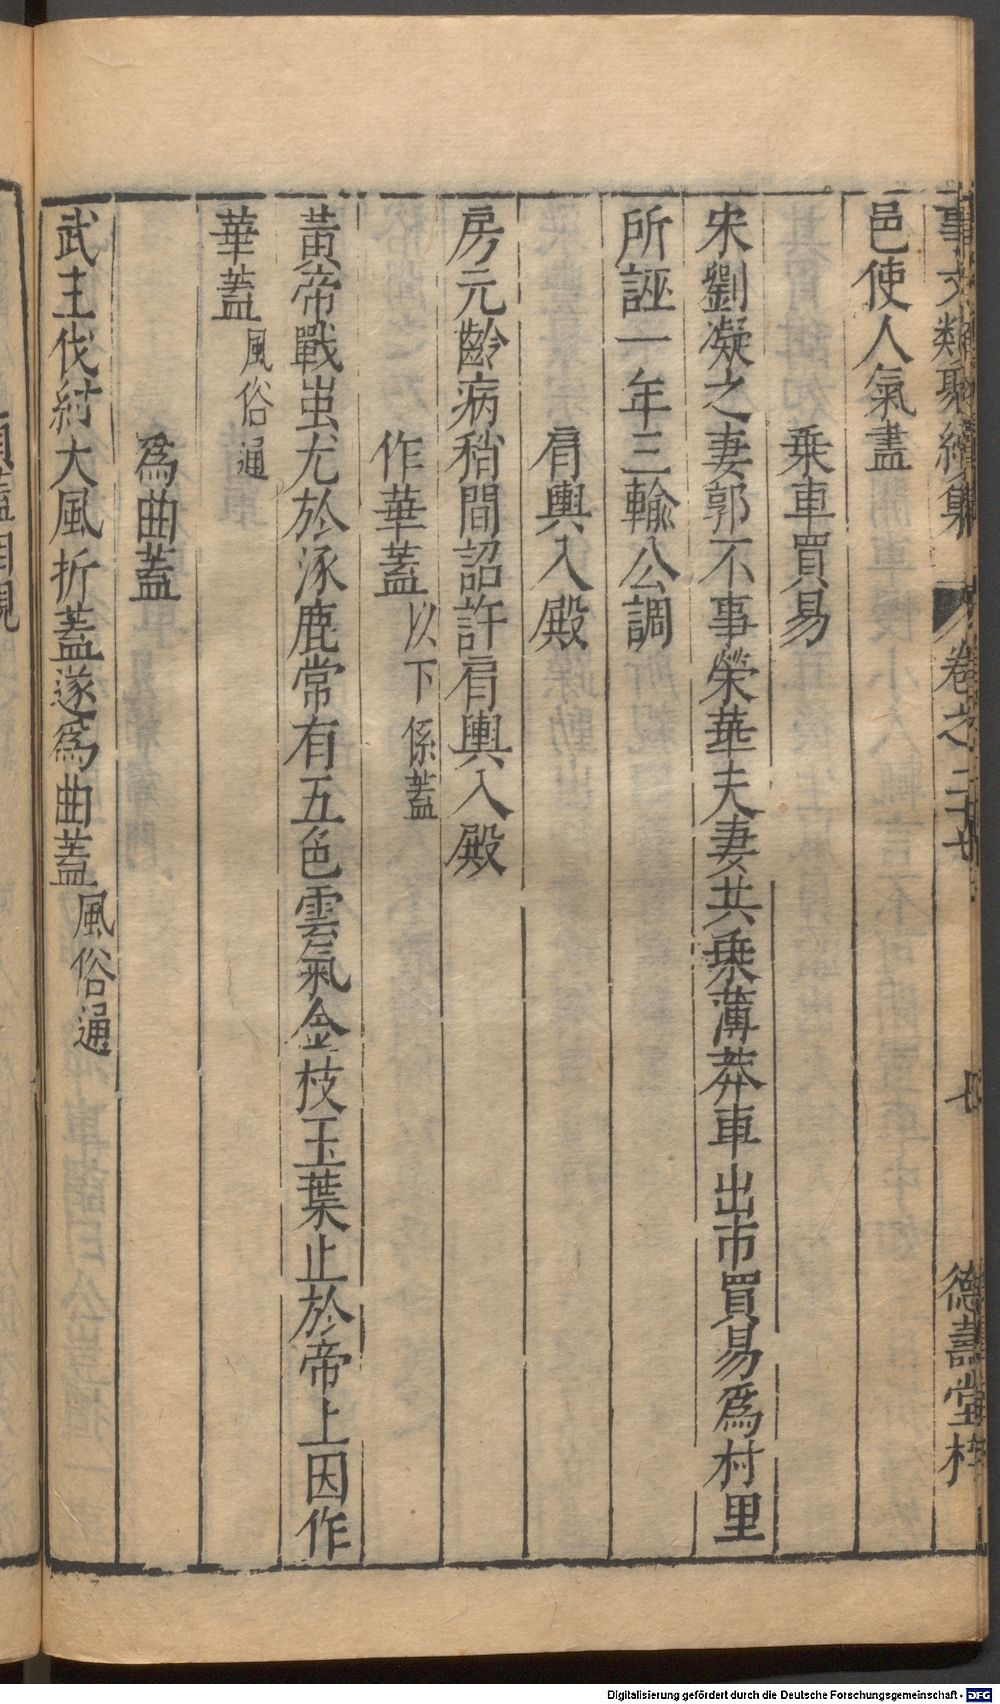 事文類聚續集 卷之二十七 七 德壽堂梓
邑使人氣盡
乘車買易
宋劉凝之妻郭不事榮華夫妻共乘薄莽車出市買易爲村里
所誣一年三輸公調
肩輿入殿
房元齡病稍間詔許肩輿入殿
作華蓋以下係蓋
黃帝戰蚩尤於涿鹿常有五色雲氣金枝玉葉止於帝上因作
華蓋風俗通
爲曲蓋
武王伐紂大風折蓋遂爲曲蓋風俗通
Digitalisierung gefördert durch die Deutsche Forschungsgemeinschaft - DFG